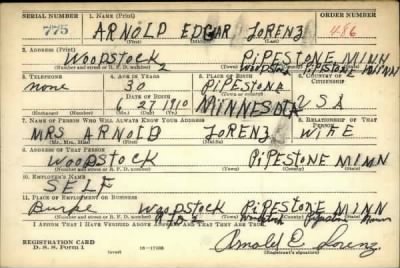 SERIAL NUMBER 1. NAME (Print) ORDER NUMBER
775 ARNOLD EDGAR LORENZ 486
2. ADDRESS (Print)
WOODSTOCK 2 PIPESTONE MINN
Woodstock Pipestone Minn
(Number and street or R. F. D. number) (Town) (County) (State)
3. TELEPHONE 4. AGE IN YEARS 5. PLACE OF BIRTH 6. COUNTRY OF CITIZENSHIP
none 30 PIPESTONE
DATE OF BIRTH (Town or county)
6 27 1910 MINNESOTA U S A
(Exchange) (No.) (Mo.) (Day) (Yr.) (State or country)
7. NAME OF PERSON WHO WILL ALWAYS KNOW YOUR ADDRESS 8. RELATIONSHIP OF THAT PERSON
MRS ARNOLD LORENZ WIFE
(Mr., Mrs., Miss) (First) (Middle) (Last)
9. ADDRESS OF THAT PERSON
WOODSTOCK PIPESTONE MINN
(Number and street or R. F. D. number) (Town) (County) (State)
10. EMPLOYER'S NAME
SELF
11. PLACE OF EMPLOYMENT OR BUSINESS
Burke WOODSTOCK PIPESTONE MINN
R.F.D. 2 Woodstock Pipestone Minn
(Number and street or R. F. D. number) (Town) (County) (State)
I AFFIRM THAT I HAVE VERIFIED ABOVE ANSWERS AND THAT THEY ARE TRUE.
REGISTRATION CARD
D. S. S. Form 1 (over) 16—17105 Arnold E Lorenz